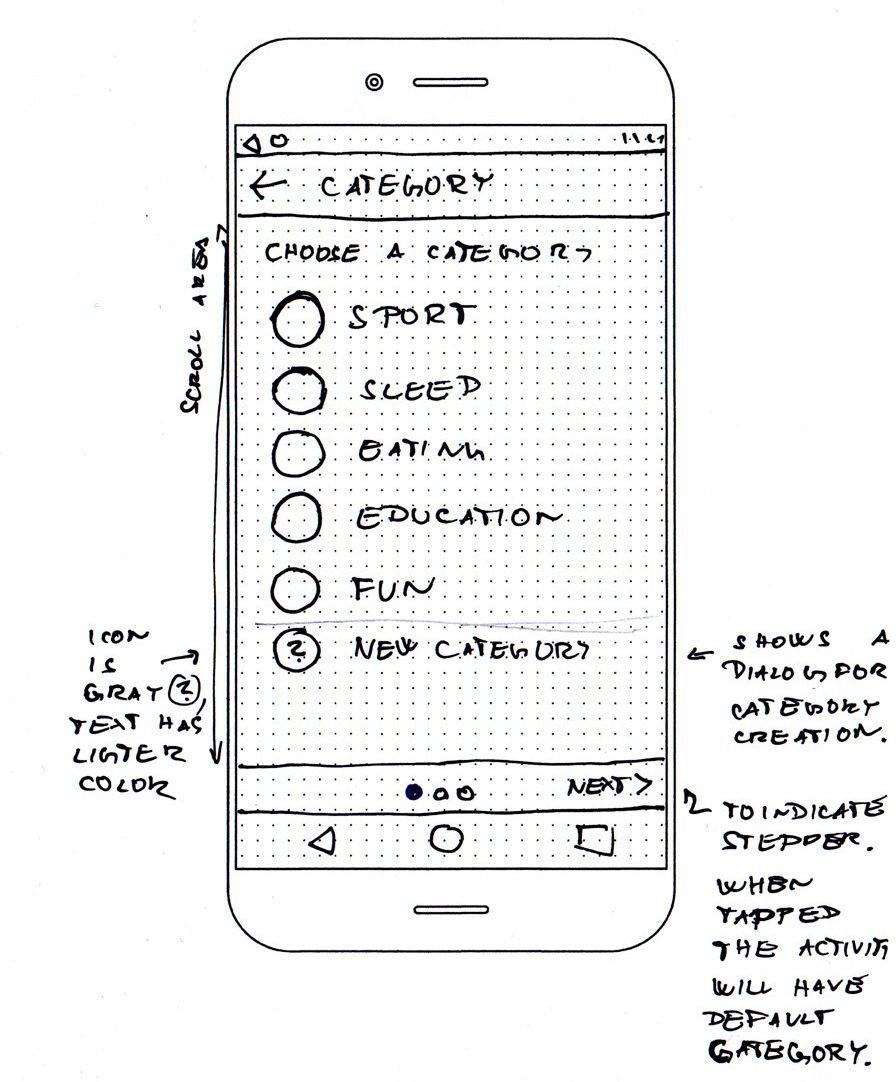 11:21
← CATEGORY
CHOOSE A CATEGORY
SPORT
SLEED
EATING
EDUCATION
FUN
? NEW CATEGORY
NEXT >
SCROLL AREA
ICON
IS
GRAY ?,
TEXT HAS
LIGTER
COLOR
← SHOWS A
DIALOG FOR
CATEGORY
CREATION.
TO INDICATE
STEPPER.
WHEN
TAPPED
THE ACTIVITY
WILL HAVE
DEFAULT
CATEGORY.